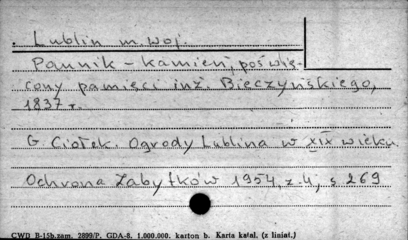 . Lublin m. woj.
Pomnik - kamień, poświę-
cony pamięci inż. Bieczyńskiego,
1837 r.
G. Ciołek. Ogrody Lublina w XIX wieku.
Ochrona Zabytków 1954, z. 4, s 269
CWD B-15b.zam. 2899/P. GDA-8. 1.000.000. karton b. Karta katal. (z liniat.)